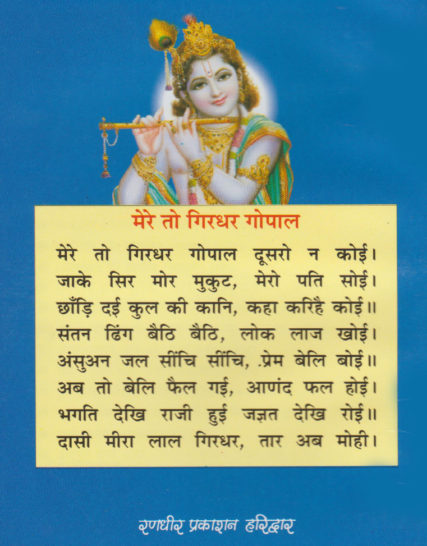 मेरे तो गिरधर गोपाल
मेरे तो गिरधर गोपाल दूसरो न कोई।
जाके सिर मोर मुकुट, मेरो पति सोई।
छाँड़ि दई कुल की कानि, कहा करिहै कोई॥
संतन ढिंग बैठि बैठि, लोक लाज खोई।
अंसुअन जल सींचि सींचि, प्रेम बेलि बोई॥
अब तो बेलि फैल गई, आणंद फल होई।
भगति देखि राजी हुई जज्ञत देखि रोई॥
दासी मीरा लाल गिरधर, तार अब मोही।
रणधीर प्रकाशन हरिद्वार